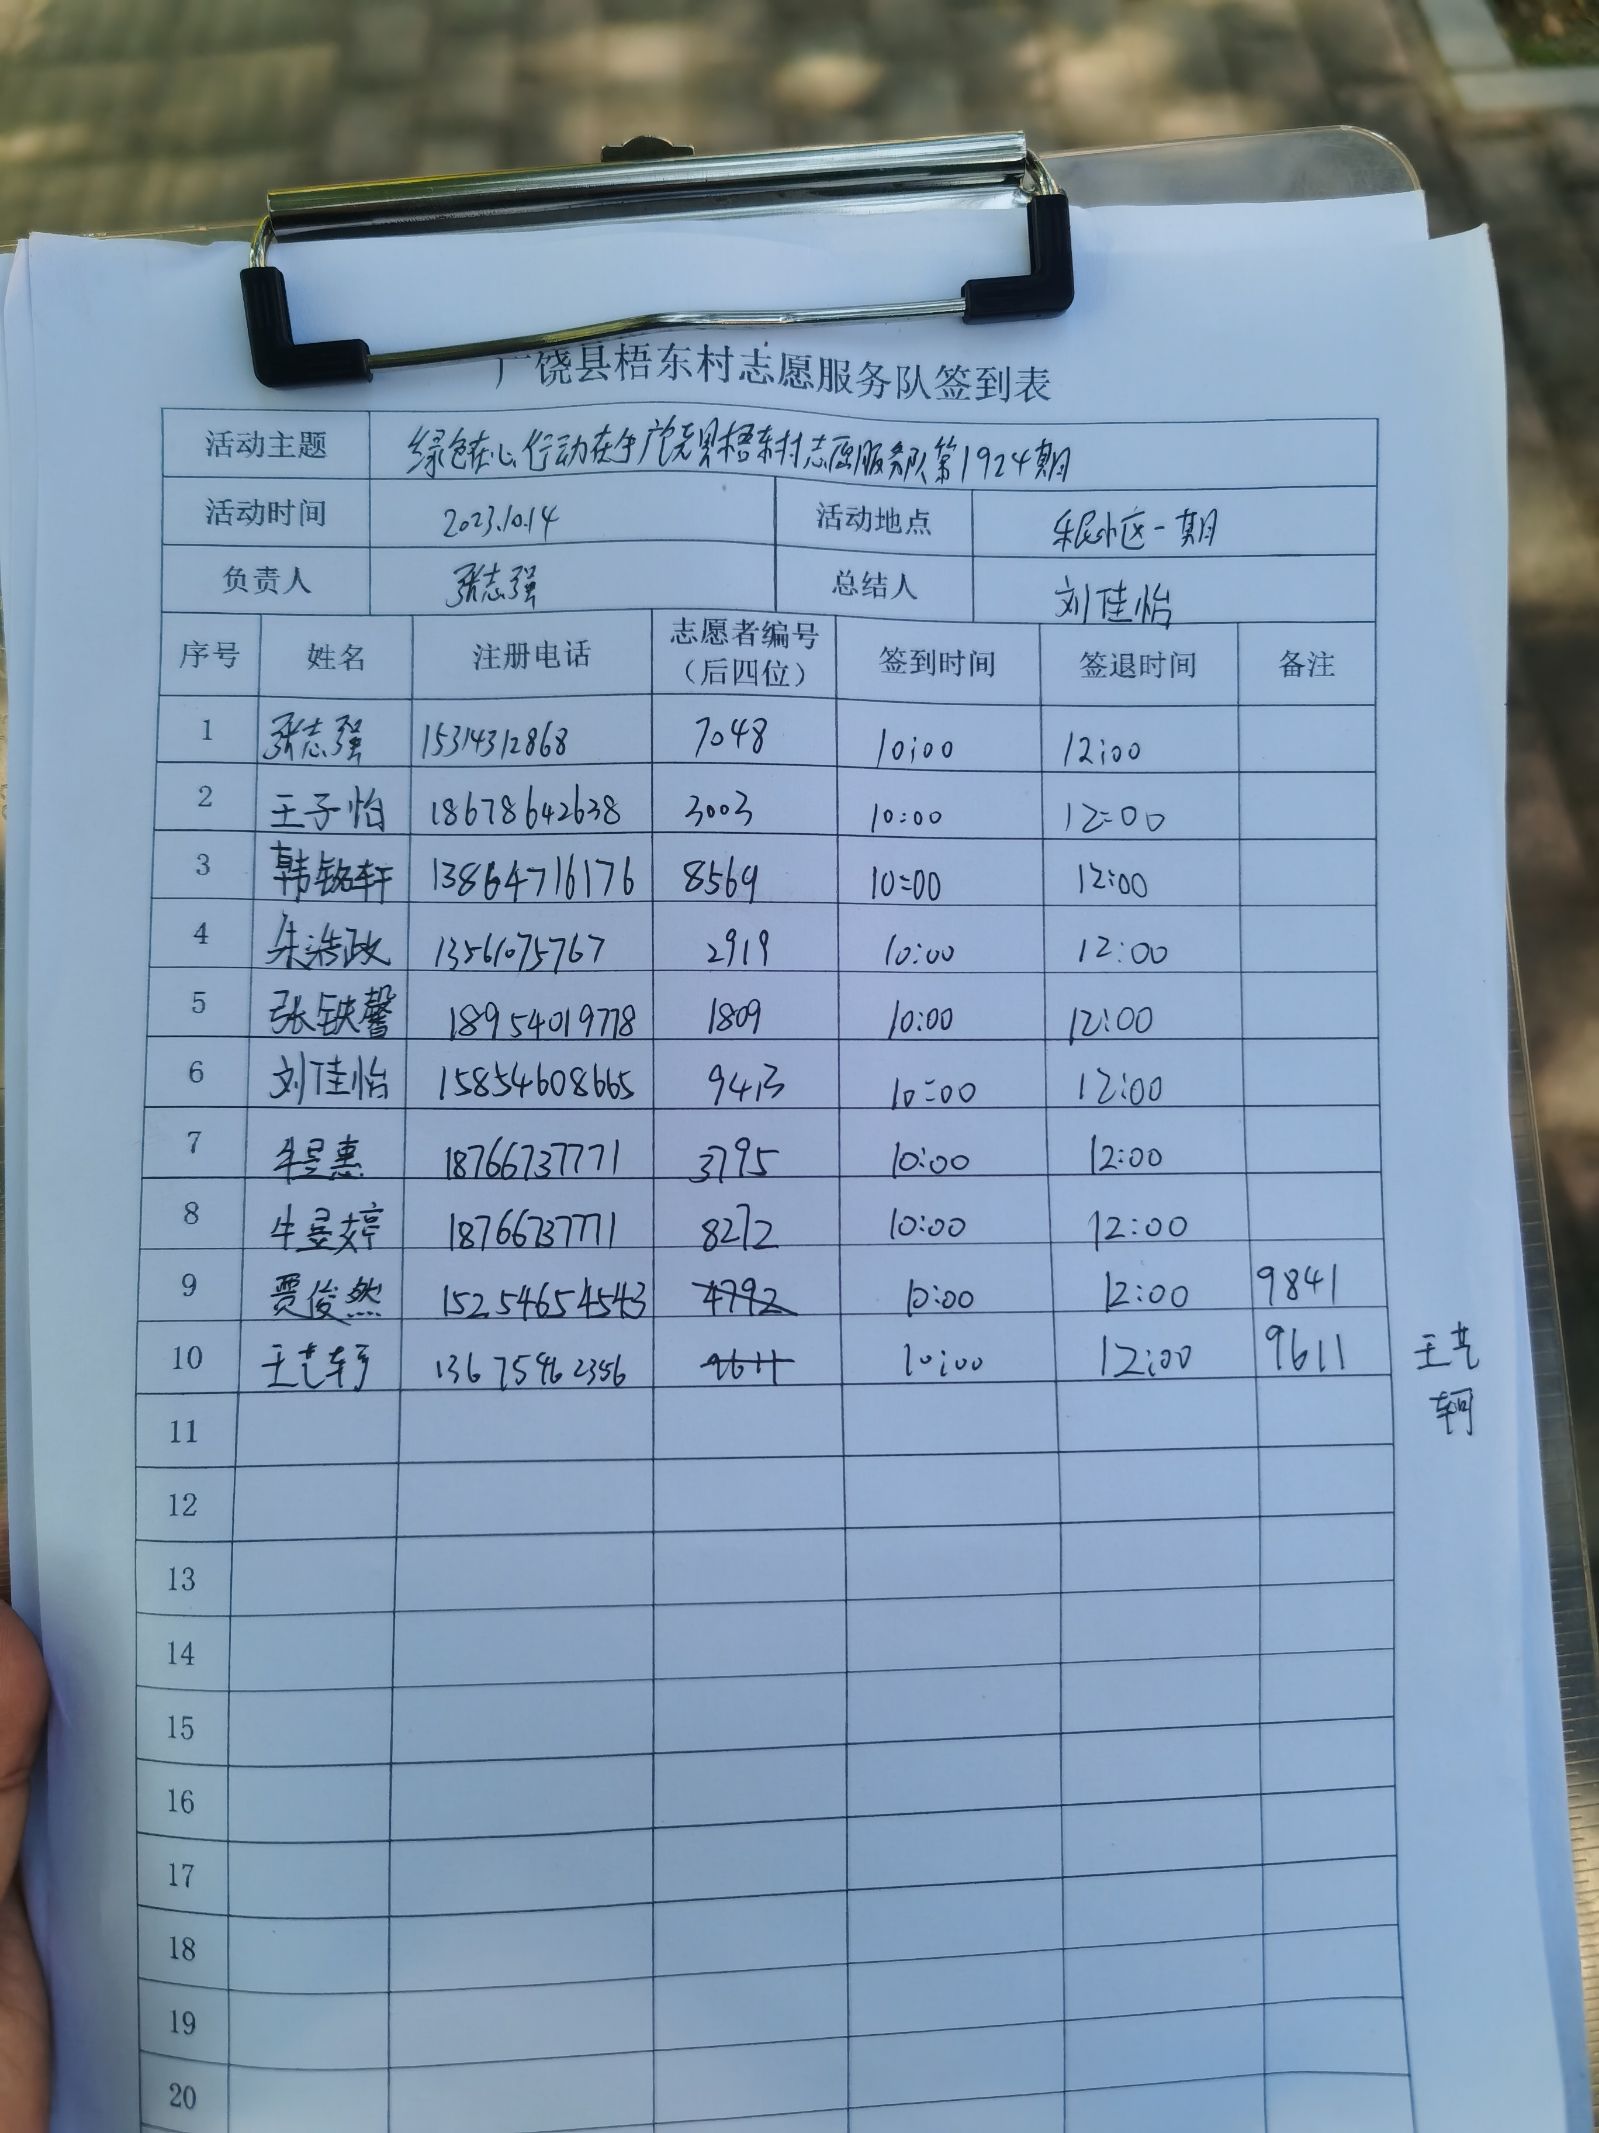 广饶县梧东村志愿服务队签到表
活动主题 绿色在心行动在手广饶县梧东村志愿服务队第1924期
活动时间 2023.10.14 活动地点 乐民小区一期
负责人 张志强 总结人 刘佳怡
序号 姓名 注册电话 志愿者编号（后四位） 签到时间 签退时间 备注
1 张志强 15314312868 7048 10:00 12:00
2 王子怡 18678642638 3003 10:00 12:00
3 韩铭轩 13864716176 8569 10:00 12:00
4 朱浩政 13561075767 2919 10:00 12:00
5 张轶馨 18954019778 1809 10:00 12:00
6 刘佳怡 15854608665 9413 10:00 12:00
7 牛昱惠 18766737771 3795 10:00 12:00
8 牛昱婷 18766737771 8272 10:00 12:00
9 贾俊然 15254654543 4792 10:00 12:00 9841
10 王艺轲 13675462356 9611 10:00 12:00 9611 王艺轲
11
12
13
14
15
16
17
18
19
20